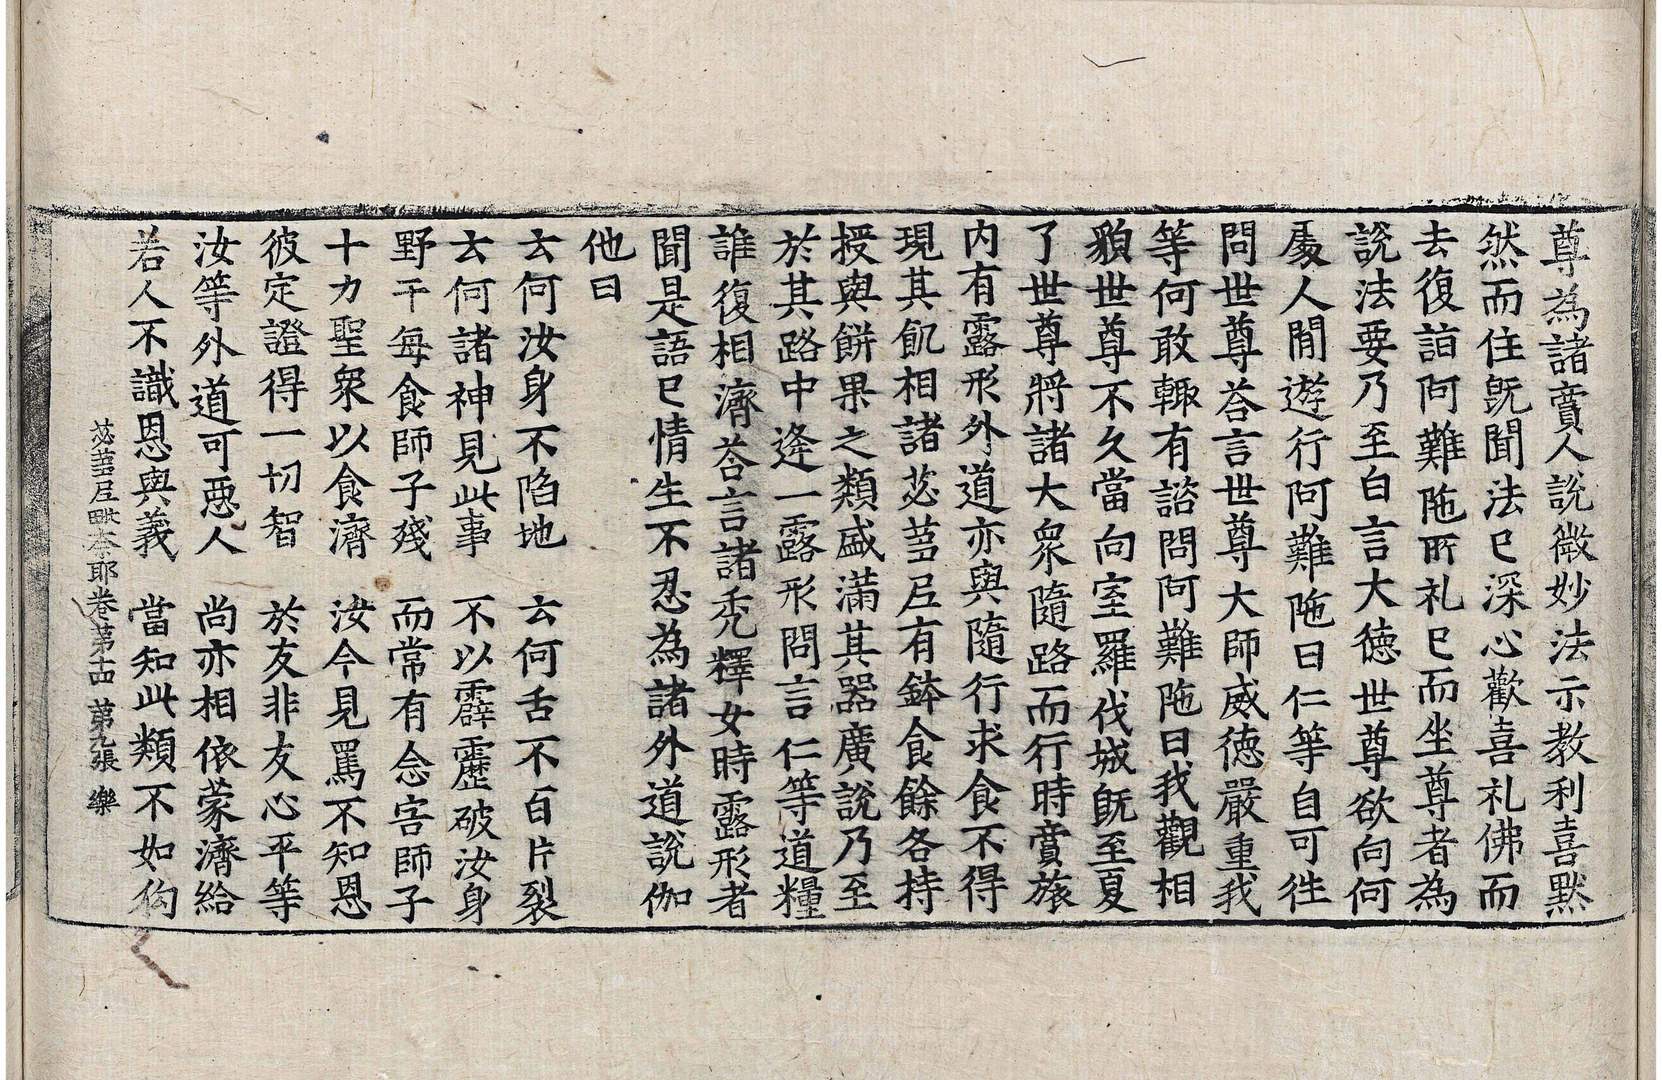 尊為諸賣人說微妙法示教利喜默
然而住旣聞法已深心歡喜礼佛而
去復詣阿難陁所礼已而坐尊者為
說法要乃至白言大德世尊欲向何
處人閒遊行阿難陁曰仁等自可往
問世尊荅言世尊大師威德嚴重我
等何敢輙有諮問阿難陁曰我觀相
皃世尊不久當向室羅伐城旣至夏
了世尊將諸大衆隨路而行時賣旅
內有露形外道亦與隨行求食不得
現其飢相諸苾蒭尼有鉢食餘各持
授與餅果之類盛滿其器廣說乃至
於其路中逢一露形問言仁等道糧
誰復相濟荅言諸禿釋女時露形者
聞是語已情生不忍為諸外道說伽
他曰
云何汝身不陷地　云何舌不百片裂
云何諸神見此事　不以霹靂破汝身
野干每食師子殘　而常有念害師子
十力聖衆以食濟　汝今見罵不知恩
彼定證得一切智　於友非友心平等
汝等外道可惡人　尚亦相依蒙濟給
若人不識恩與義　當知此類不如狗
苾蒭尼毗奈耶卷第十四　第九張　樂